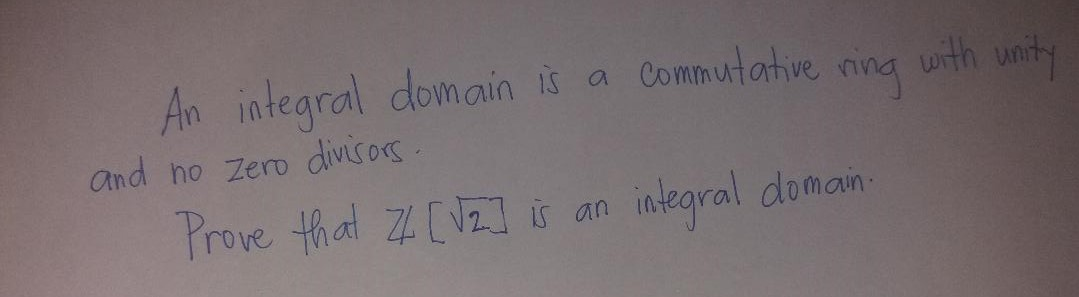 An integral domain is a commutative ring with unity
and no zero divisors.
Prove that ℤ[√2] is an integral domain.